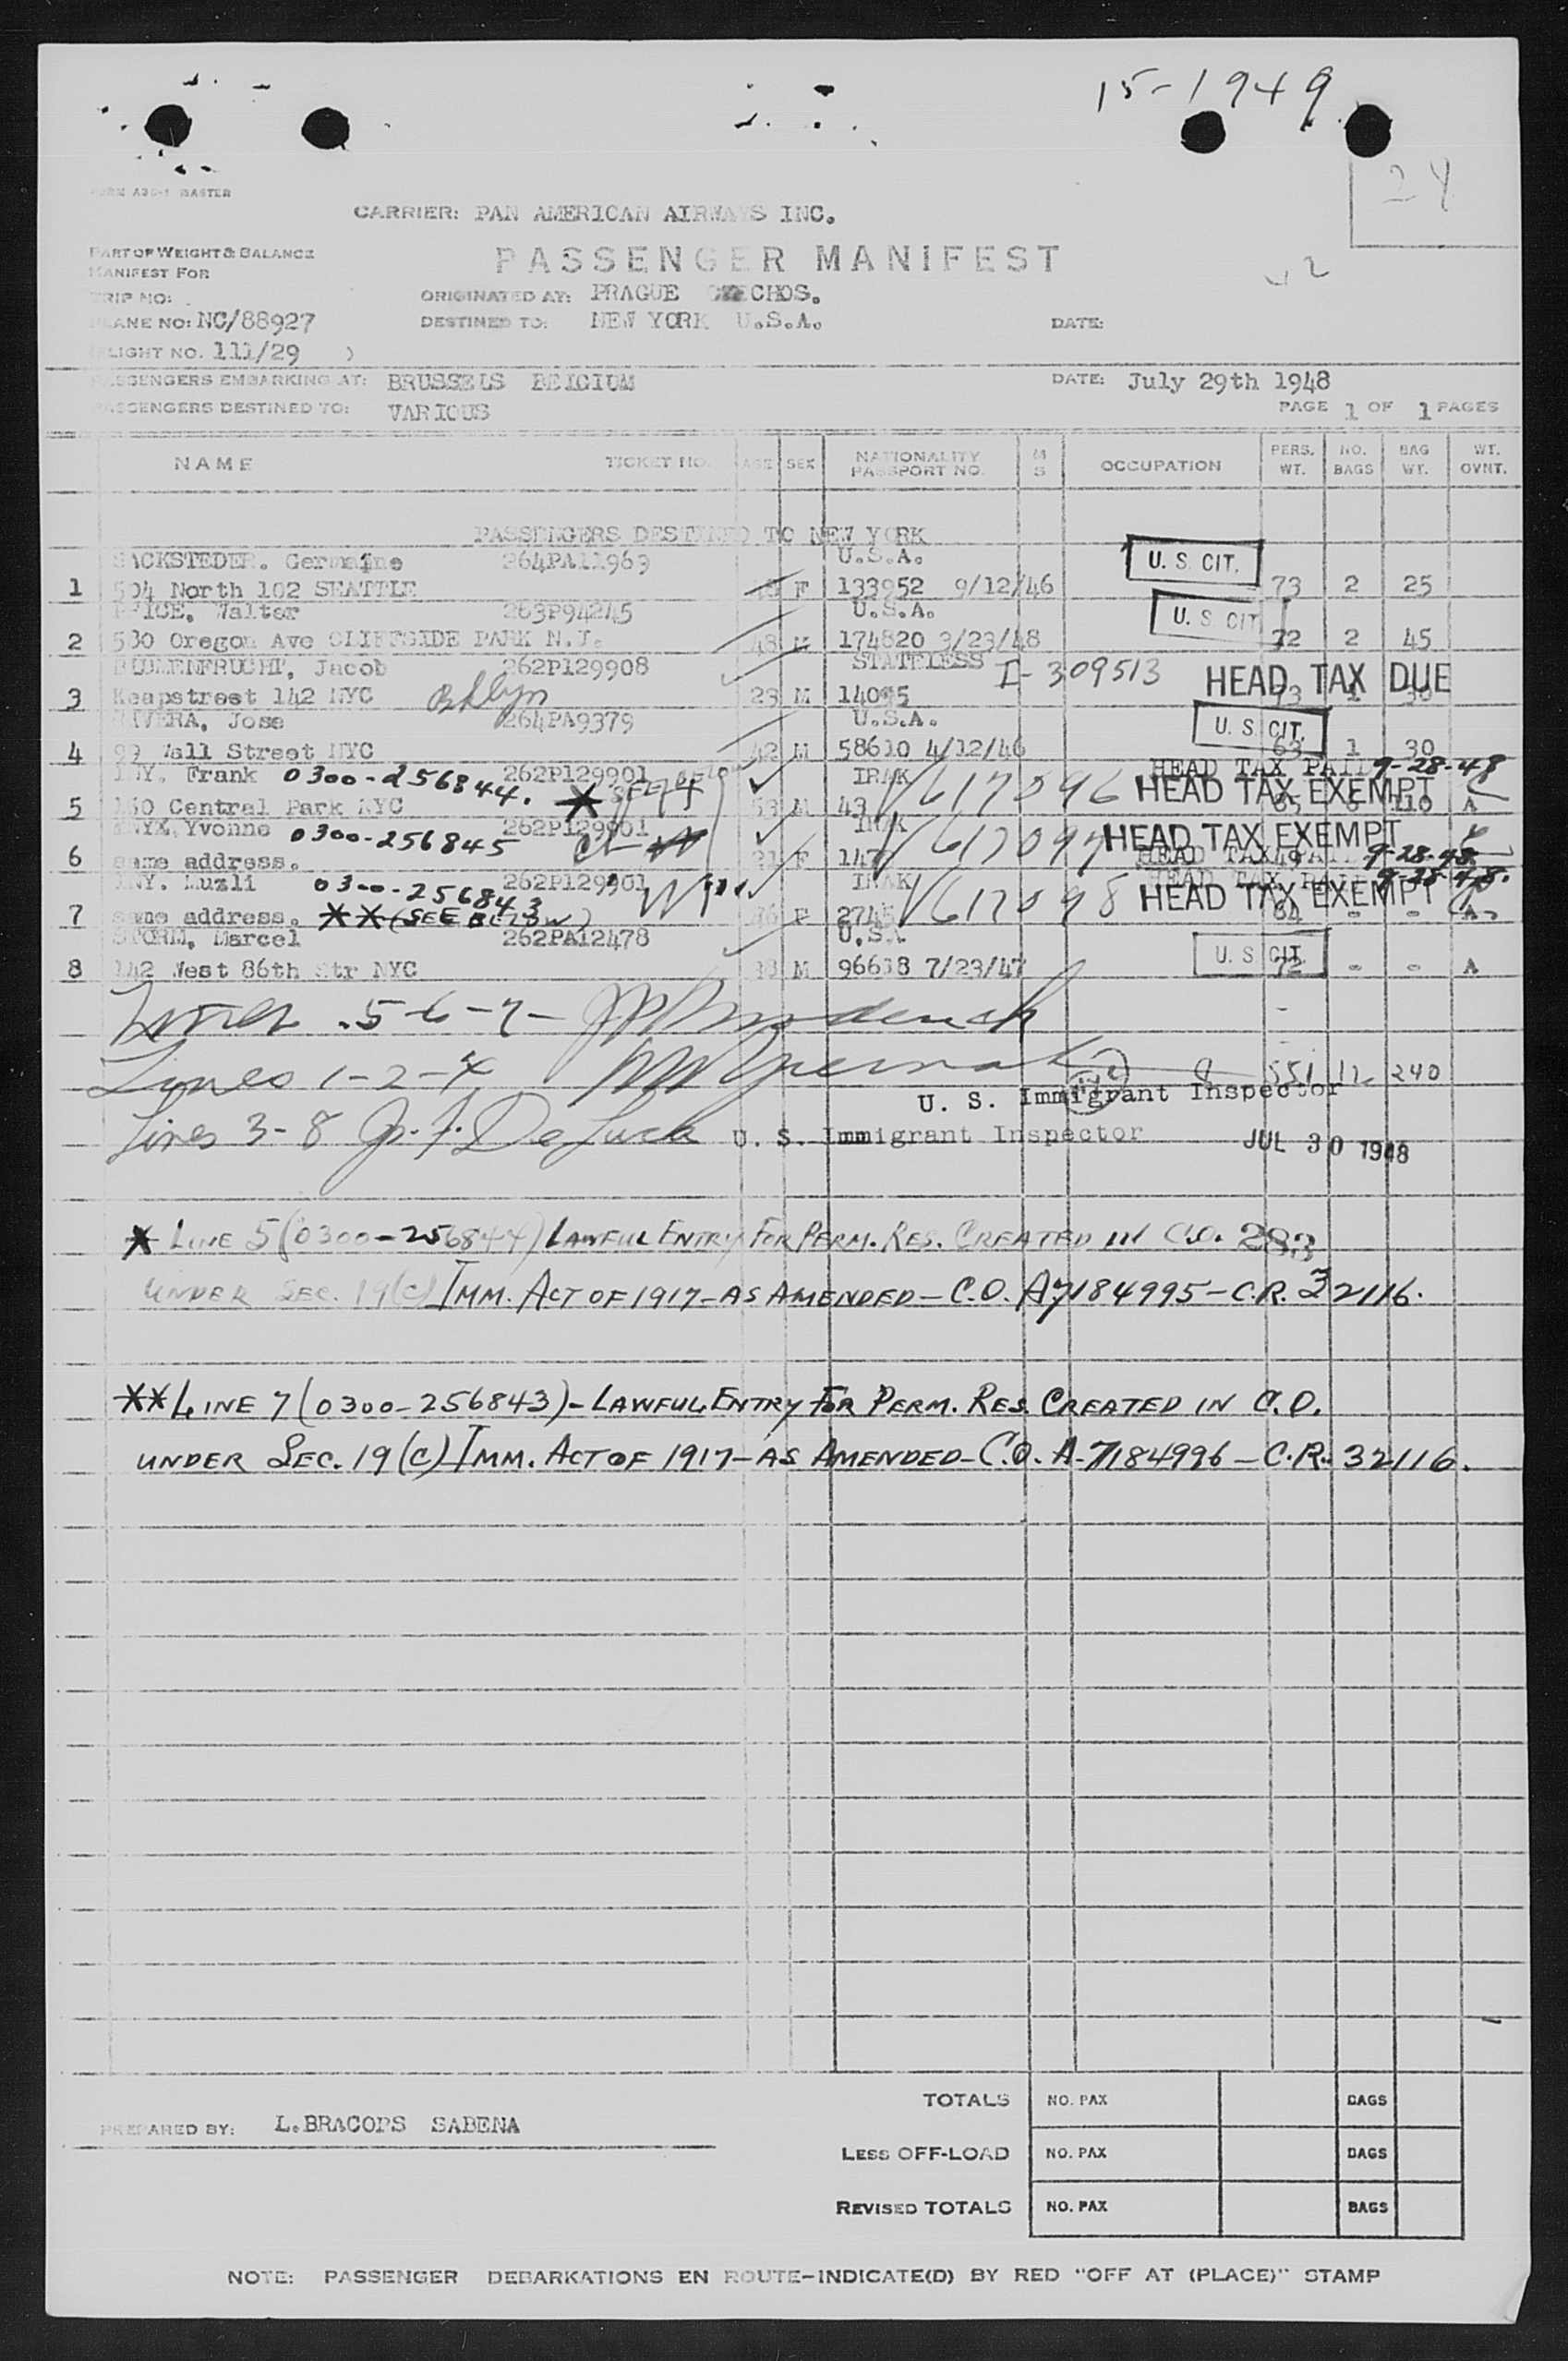 15-1949
24
CARRIER: PAN AMERICAN AIRWAYS INC.
PART OF WEIGHT & BALANCE
MANIFEST FOR
PASSENGER MANIFEST
TRIP NO:
ORIGINATED AT: PRAGUE CZECHOS.
PLANE NO: NC/88927
DESTINED TO: NEW YORK U.S.A.
DATE:
(FLIGHT NO. 111/29 )
PASSENGERS EMBARKING AT: BRUSSELS BELGIUM
DATE: July 29th 1948
PASSENGERS DESTINED TO: VARIOUS
PAGE 1 OF 1 PAGES
NAME TICKET NO. AGE SEX NATIONALITY PASSPORT NO. M S OCCUPATION PERS. WT. NO. BAGS BAG WT. WT. OVNT.
PASSENGERS DESTINED TO NEW YORK
SACKSTEDER. Germaine 264PA11969 U.S.A. U. S. CIT.
1 504 North 102 SEATTLE F 133952 9/12/46 73 2 25
PRICE. Walter 263P94245 U.S.A. U. S. CIT.
2 530 Oregon Ave CLIFFSIDE PARK N.J. 48 M 174820 3/23/48 72 2 45
BLUMENFRUCHT, Jacob 262P129908 STATELESS I-309513 HEAD TAX DUE
3 Keapstreet 142 NYC Bklyn 23 M 73 1 30
RIVERA, Jose 264PA9379 U.S.A. U. S. CIT.
4 99 Wall Street NYC 42 M 58610 4/12/46 63 1 30
Frank 0300-256844. 262P129901 IRAK V617096 HEAD TAX PAID 9-28-48
5 Central Park NYC * 53 M 43 HEAD TAX EXEMPT 110 A
Yvonne 0300-256845 262P129901 IRAK V617097 HEAD TAX EXEMPT
6 same address. 21 F HEAD TAX PAID 9-28-48
Muzli 0300-256843 262P129901 IRAK V617098 HEAD TAX PAID 9-28-48.
7 same address. **(SEE BELOW) F HEAD TAX EXEMPT 64 - - A
STORM, Marcel 262PA12478 U.S.A. U. S. CIT.
8 142 West 86th Str NYC M 96638 7/23/47 72 - - A
5-6-7-
Lines 1-2-4 551 12 240
U. S. Immigrant Inspector
Lines 3-8 U. S. Immigrant Inspector JUL 30 1948
* LINE 5 (0300-256844) LAWFUL ENTRY FOR PERM. RES. CREATED IN C.O. 283
UNDER SEC. 19(C) IMM. ACT OF 1917-AS AMENDED-C.O. A7184995-C.R. 32116.
**LINE 7 (0300-256843)-LAWFUL ENTRY FOR PERM. RES. CREATED IN C.O.
UNDER SEC. 19(C) IMM. ACT OF 1917-AS AMENDED-C.O. A-7184996-C.R. 32116.
TOTALS NO. PAX BAGS
PREPARED BY: L.BRACOPS SABENA
LESS OFF-LOAD NO. PAX BAGS
REVISED TOTALS NO. PAX BAGS
NOTE: PASSENGER DEBARKATIONS EN ROUTE-INDICATE(D) BY RED "OFF AT (PLACE)" STAMP